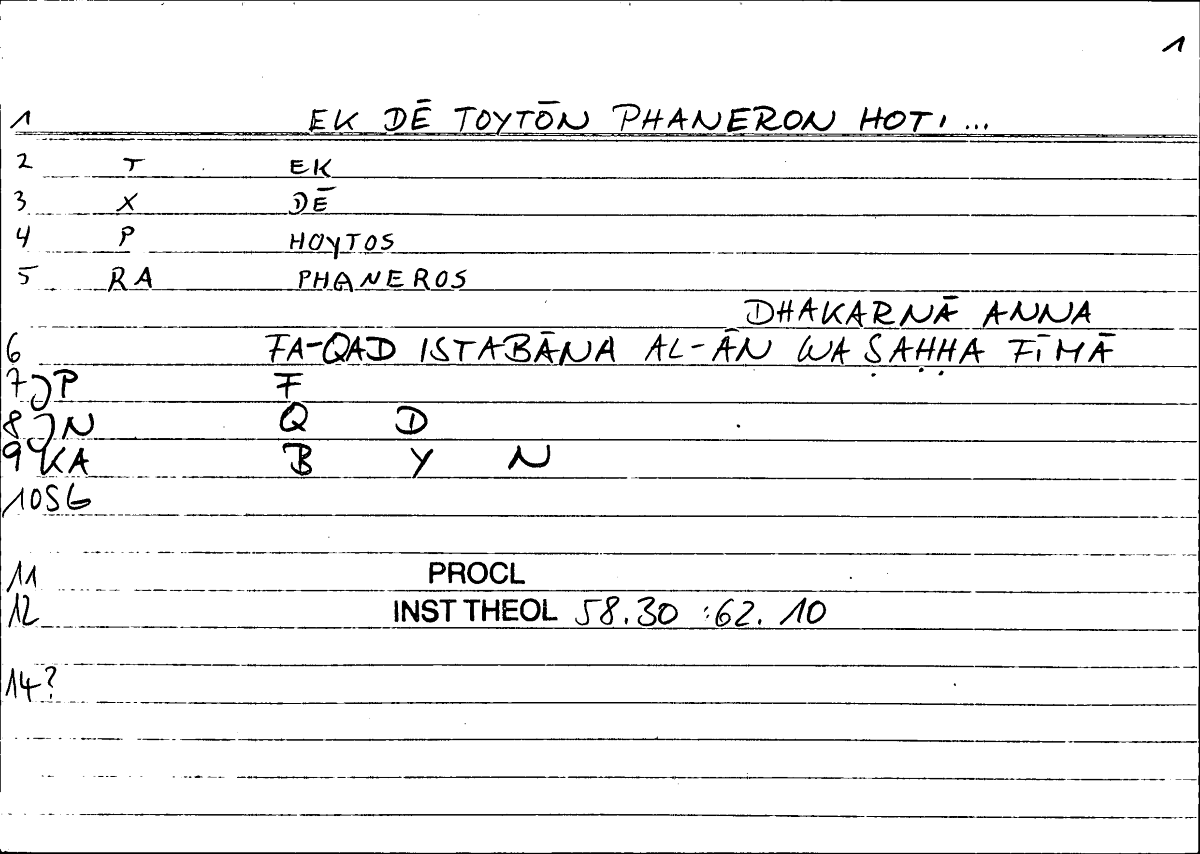 1
1 EK DĒ TOYTŌN PHANERON HOTI ...
2 T EK
3 X DĒ
4 P HOYTOS
5 RA PHANEROS
DHAKARNĀ ANNA
6 FA-QAD ISTABĀNA AL-ĀN WA ṢAḤḤA FĪMĀ
7 JP F
8 JN Q D
9 KA B Y N
10 SG
11 PROCL
12 INST THEOL 58.30 :62.10
14?